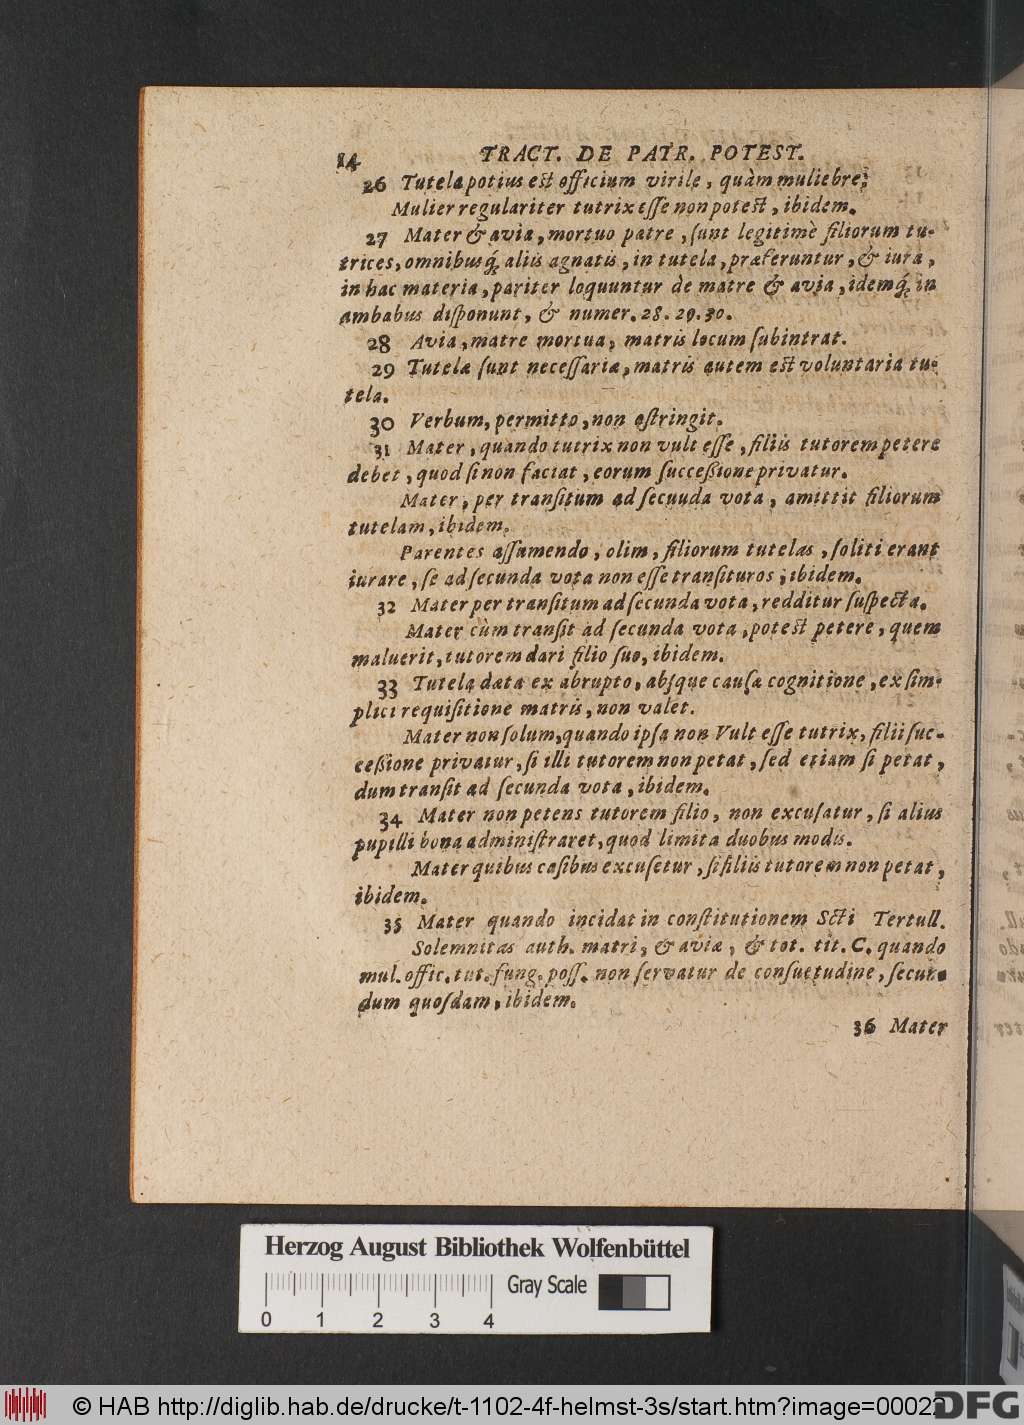 14 TRACT. DE PATR. POTEST.
26 Tutela potius est officium virile, quàm muliebre;
Mulier regulariter tutrix esse non potest, ibidem.
27 Mater & avia, mortuo patre, sunt legitimè filiorum tu-
trices, omnibusq́; aliis agnatis, in tutela, præferuntur, & iura,
in hac materia, pariter loquuntur de matre & avia, idemq́; in
ambabus disponunt, & numer. 28. 29. 30.
28 Avia, matre mortua, matris locum subintrat.
29 Tutelæ sunt necessariæ, matris autem est voluntaria tu-
tela.
30 Verbum, permitto, non astringit.
31 Mater, quando tutrix non vult esse, filiis tutorem petere
debet, quod si non faciat, eorum successione privatur.
Mater, per transitum ad secunda vota, amittit filiorum
tutelam, ibidem.
Parentes assumendo, olim, filiorum tutelas, soliti erant
iurare, se ad secunda vota non esse transituros, ibidem.
32 Mater per transitum ad secunda vota, redditur suspecta.
Mater cùm transit ad secunda vota, potest petere, quem
maluerit, tutorem dari filio suo, ibidem.
33 Tutela data ex abrupto, absque causæ cognitione, ex sim-
plici requisitione matris, non valet.
Mater non solum, quando ipsa non Vult esse tutrix, filii suc-
cessione privatur, si illi tutorem non petat, sed etiam si petat,
dum transit ad secunda vota, ibidem.
34 Mater non petens tutorem filio, non excusatur, si alius
pupilli bona administraret, quod limita duobus modis.
Mater quibus casibus excusetur, si filiis tutorem non petat,
ibidem.
35 Mater quando incidat in constitutionem Scti Tertull.
Solemnitas auth. matri, & aviæ, & tot. tit. C. quando
mul. offic. tut. fung. poss. non servatur de consuetudine, secun-
dum quosdam, ibidem.
36 Mater
Herzog August Bibliothek Wolfenbüttel
Gray Scale
0 1 2 3 4
© HAB http://diglib.hab.de/drucke/t-1102-4f-helmst-3s/start.htm?image=00022
DFG